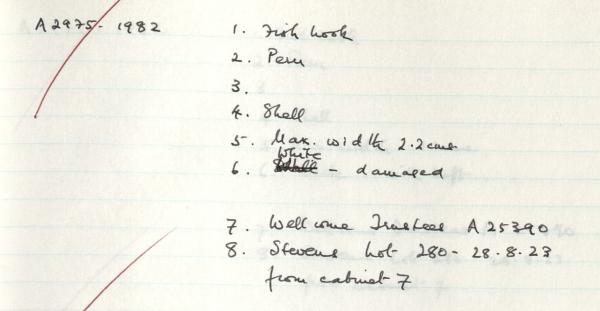 A2975-1982
1. Fish hook
2. Peru
3.
4. Shell
5. Max. width 2.2cms
White
6. - damaged
7. Wellcome Trustees A25390
8. Stevens Lot 280 - 28.8.23
from cabinet 7